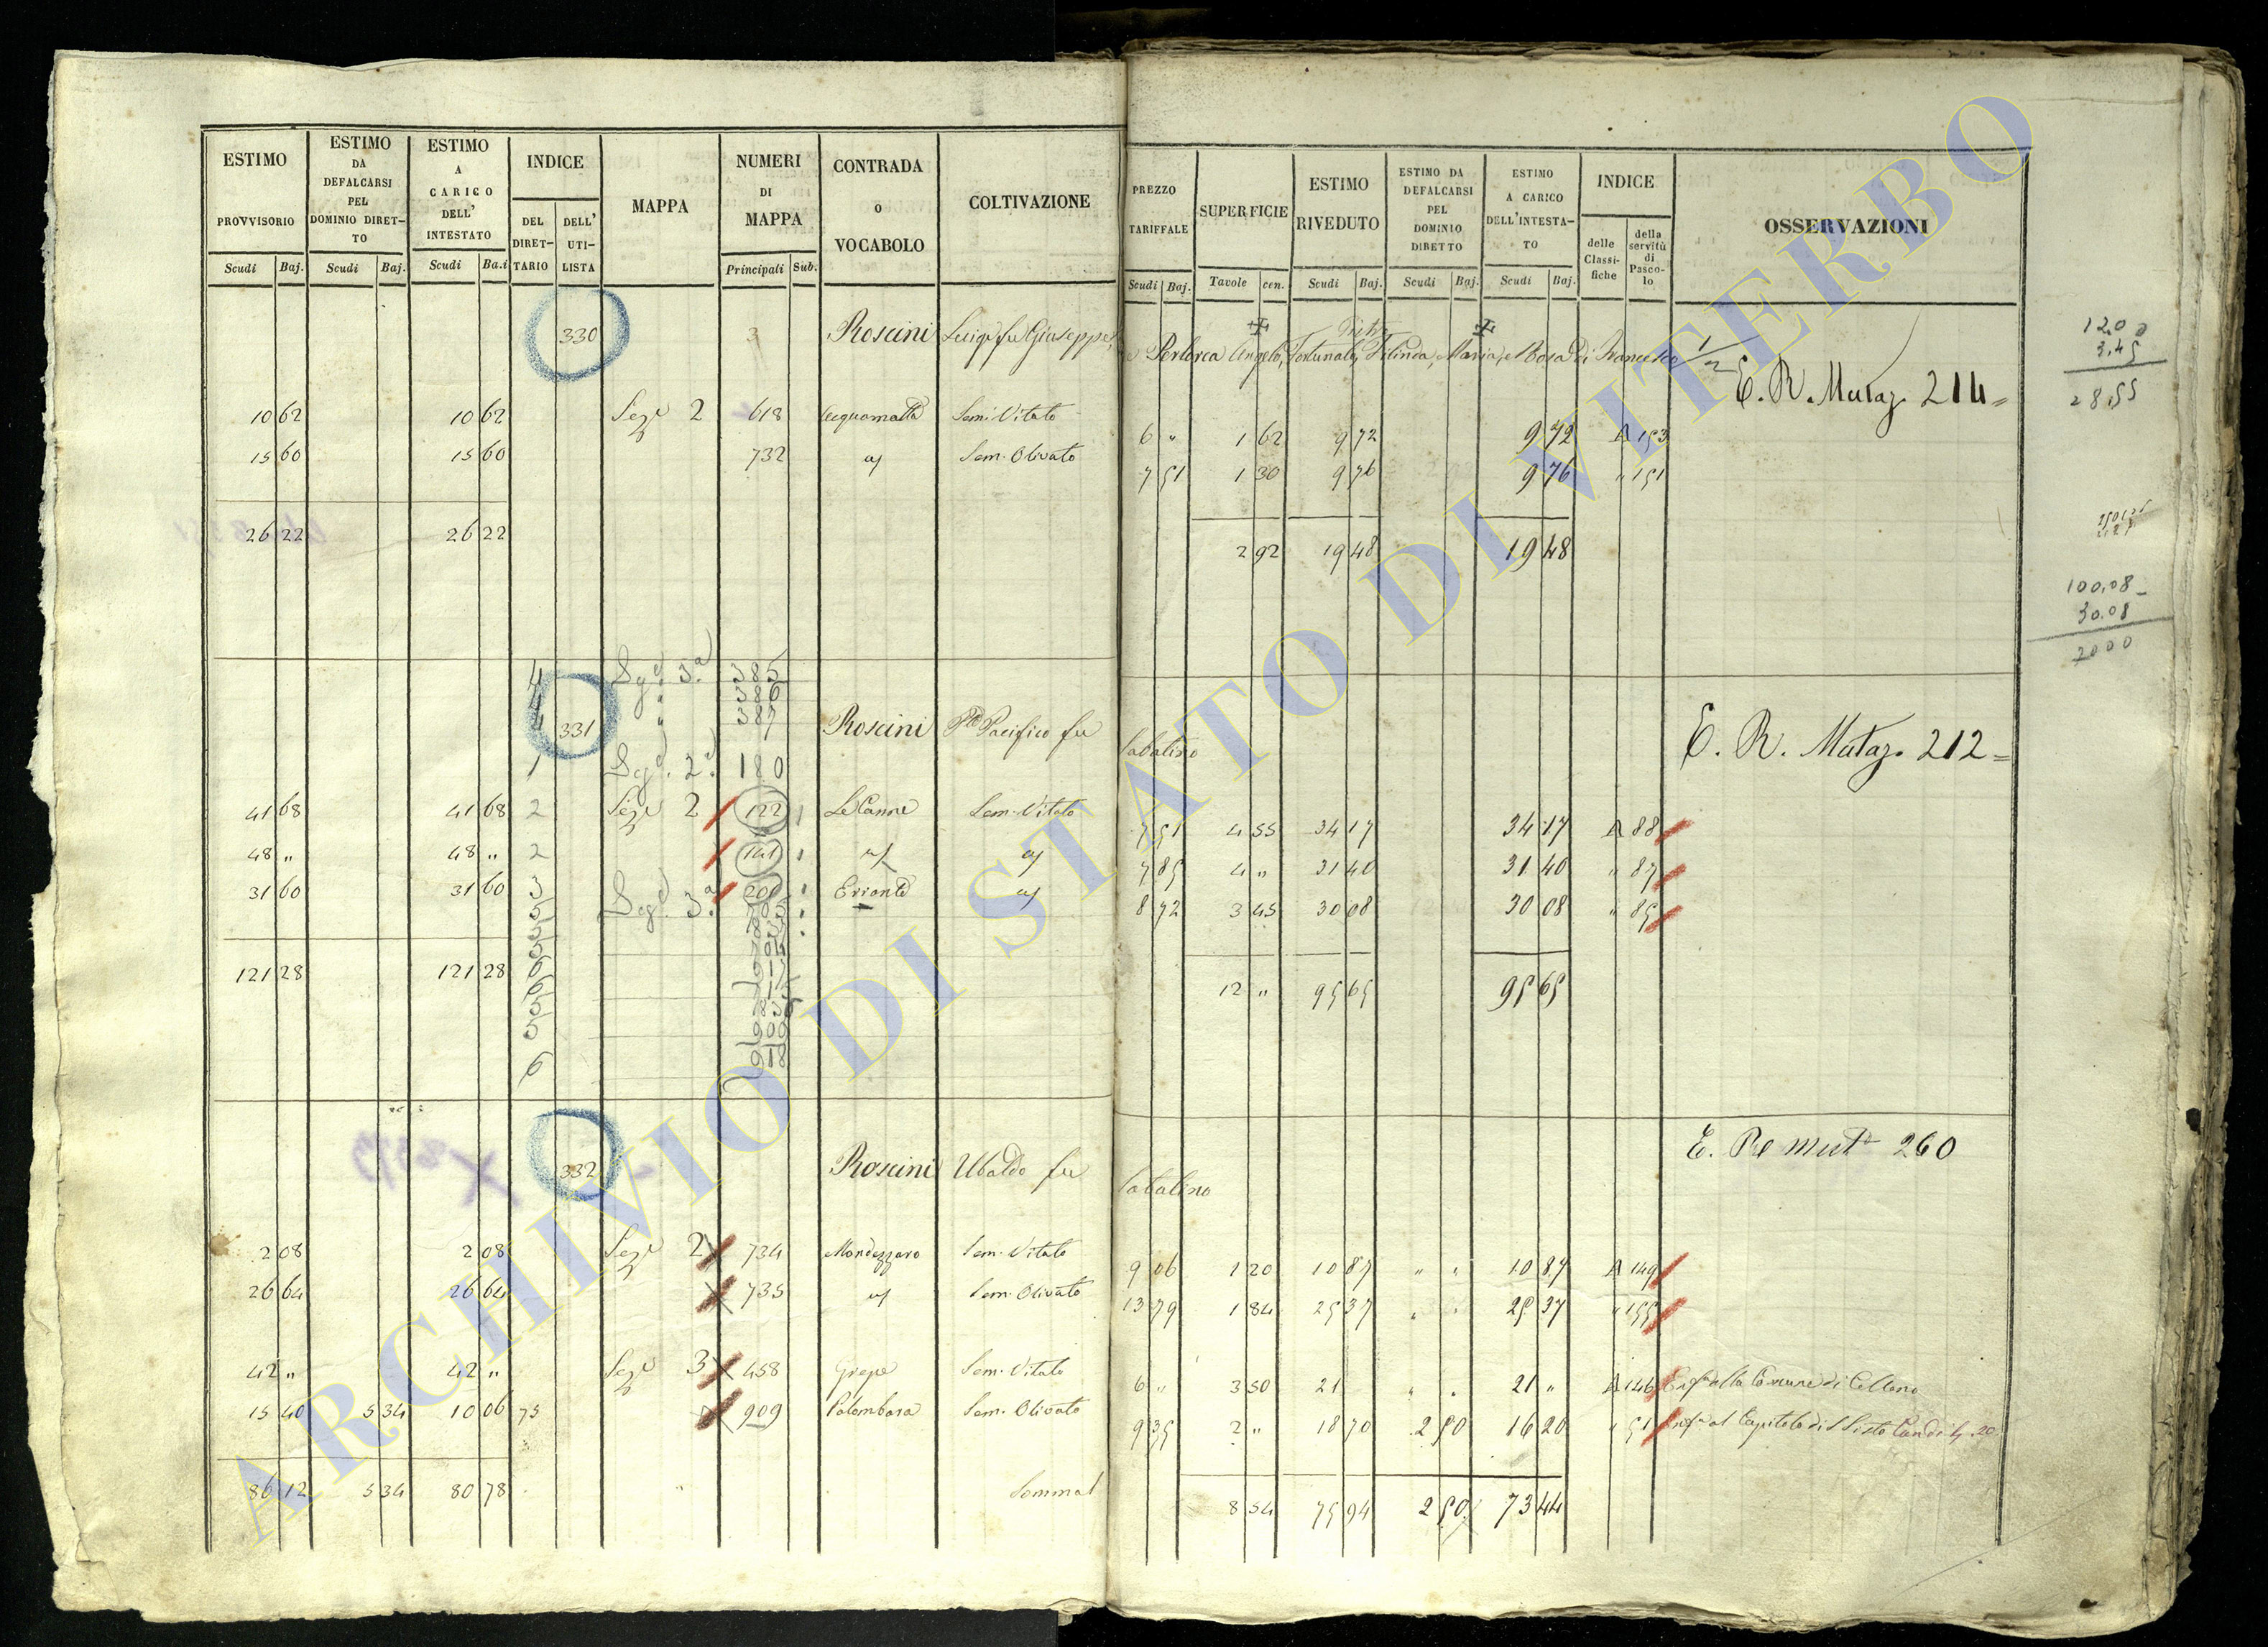 ESTIMO PROVVISORIO Scudi Baj. ESTIMO DA DEFALCARSI PEL DOMINIO DIRET-TO Scudi Baj. ESTIMO A CARICO DELL' INTESTATO Scudi Ba.i INDICE DEL DIRET-TARIO DELL' UTI-LISTA MAPPA NUMERI DI MAPPA Principali Sub. CONTRADA O VOCABOLO COLTIVAZIONE
PREZZO TARIFFALE Scudi Baj. SUPERFICIE Tavole cen. ESTIMO RIVEDUTO Scudi Baj. ESTIMO DA DEFALCARSI PEL DOMINIO DIRETTO Scudi Baj. ESTIMO A CARICO DELL'INTESTA-TO Scudi Baj. INDICE delle Classi-fiche della servitù di Pasco-lo OSSERVAZIONI
330 3 Roscini Luigi fu Giuseppe, Angelo, Fortunato, Maria, e Rosa di Francesco
E. R. Mutaz. 214
10 62 10 62 Seze 2 618 Sem. Vitato 6 " 1 62 9 72 9 72 A 153
15 60 15 60 732 Sem. Olivato 7 51 1 30 9 76 9 76 " 151
26 22 26 22 2 92 19 48 19 48
4 3.a 385
386
387
331 Roscini Pacifico fu Sabatino
E. R. Mutaz. 212
1 2.a 180
41 68 41 68 2 Seze 2 122 Le Canne Sem. Vitato 7 51 4 55 34 17 34 17 A 88
48 " 48 " 2 141 7 85 4 " 31 40 31 40 " 87
31 60 31 60 3 3.a 200 8 72 3 45 30 08 30 08 " 85
121 28 121 28 12 " 95 65 95 65
332 Roscini Ubaldo fu Sabatino
E. R. mut 260
2 08 2 08 Seze 2 734 Mondezzaro Sem. Vitato 9 06 1 20 10 87 " " 10 87 A 149
26 64 26 64 735 Sem. Olivato 13 79 1 84 25 37 " " 25 37 " 155
42 " 42 " Seze 3 458 Grepe Sem. Vitato 6 " 3 50 21 " " 21 " A 146 alla Comune di Celleno
15 40 5 34 10 06 75 909 Palombara Sem. Olivato 9 35 2 " 18 70 2 50 16 20 " 51 al Capitolo di S Sisto
86 12 5 34 80 78 Somma 8 54 75 94 2 50 73 44
12.0
3,45
28,55
100,08
30.08
ARCHIVIO DI STATO DI VITERBO